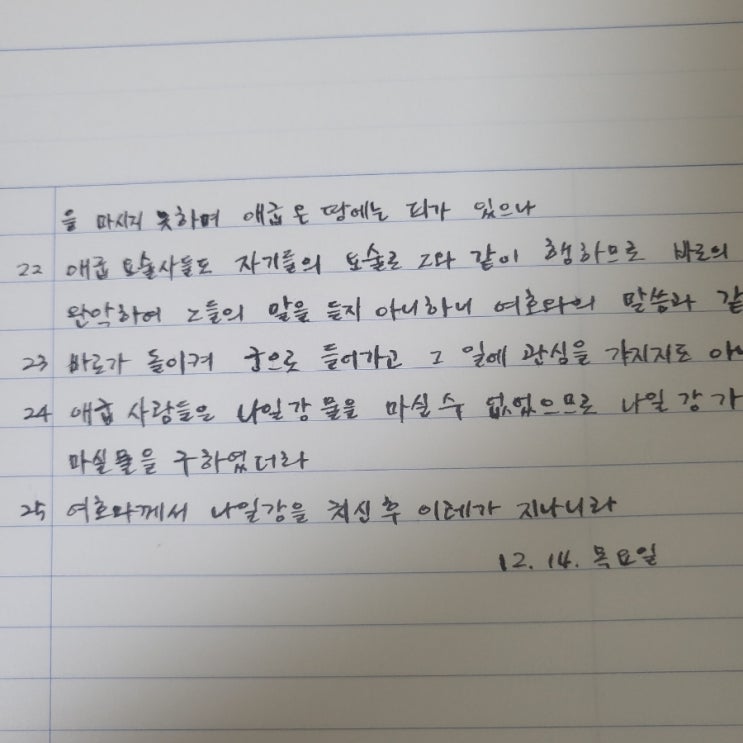 을 마시지 못하며 애굽 온 땅에는 피가 있으나
22 애굽 요술사들도 자기들의 요술로 그와 같이 행하므로 바로의
완악하여 그들의 말을 듣지 아니하니 여호와의 말씀과 같
23 바로가 돌이켜 궁으로 들어가고 그 일에 관심을 가지지도 아
24 애굽 사람들은 나일강 물을 마실 수 없었으므로 나일 강 가
마실 물을 구하였더라
25 여호와께서 나일강을 치신 후 이레가 지나니라
12. 14. 목요일